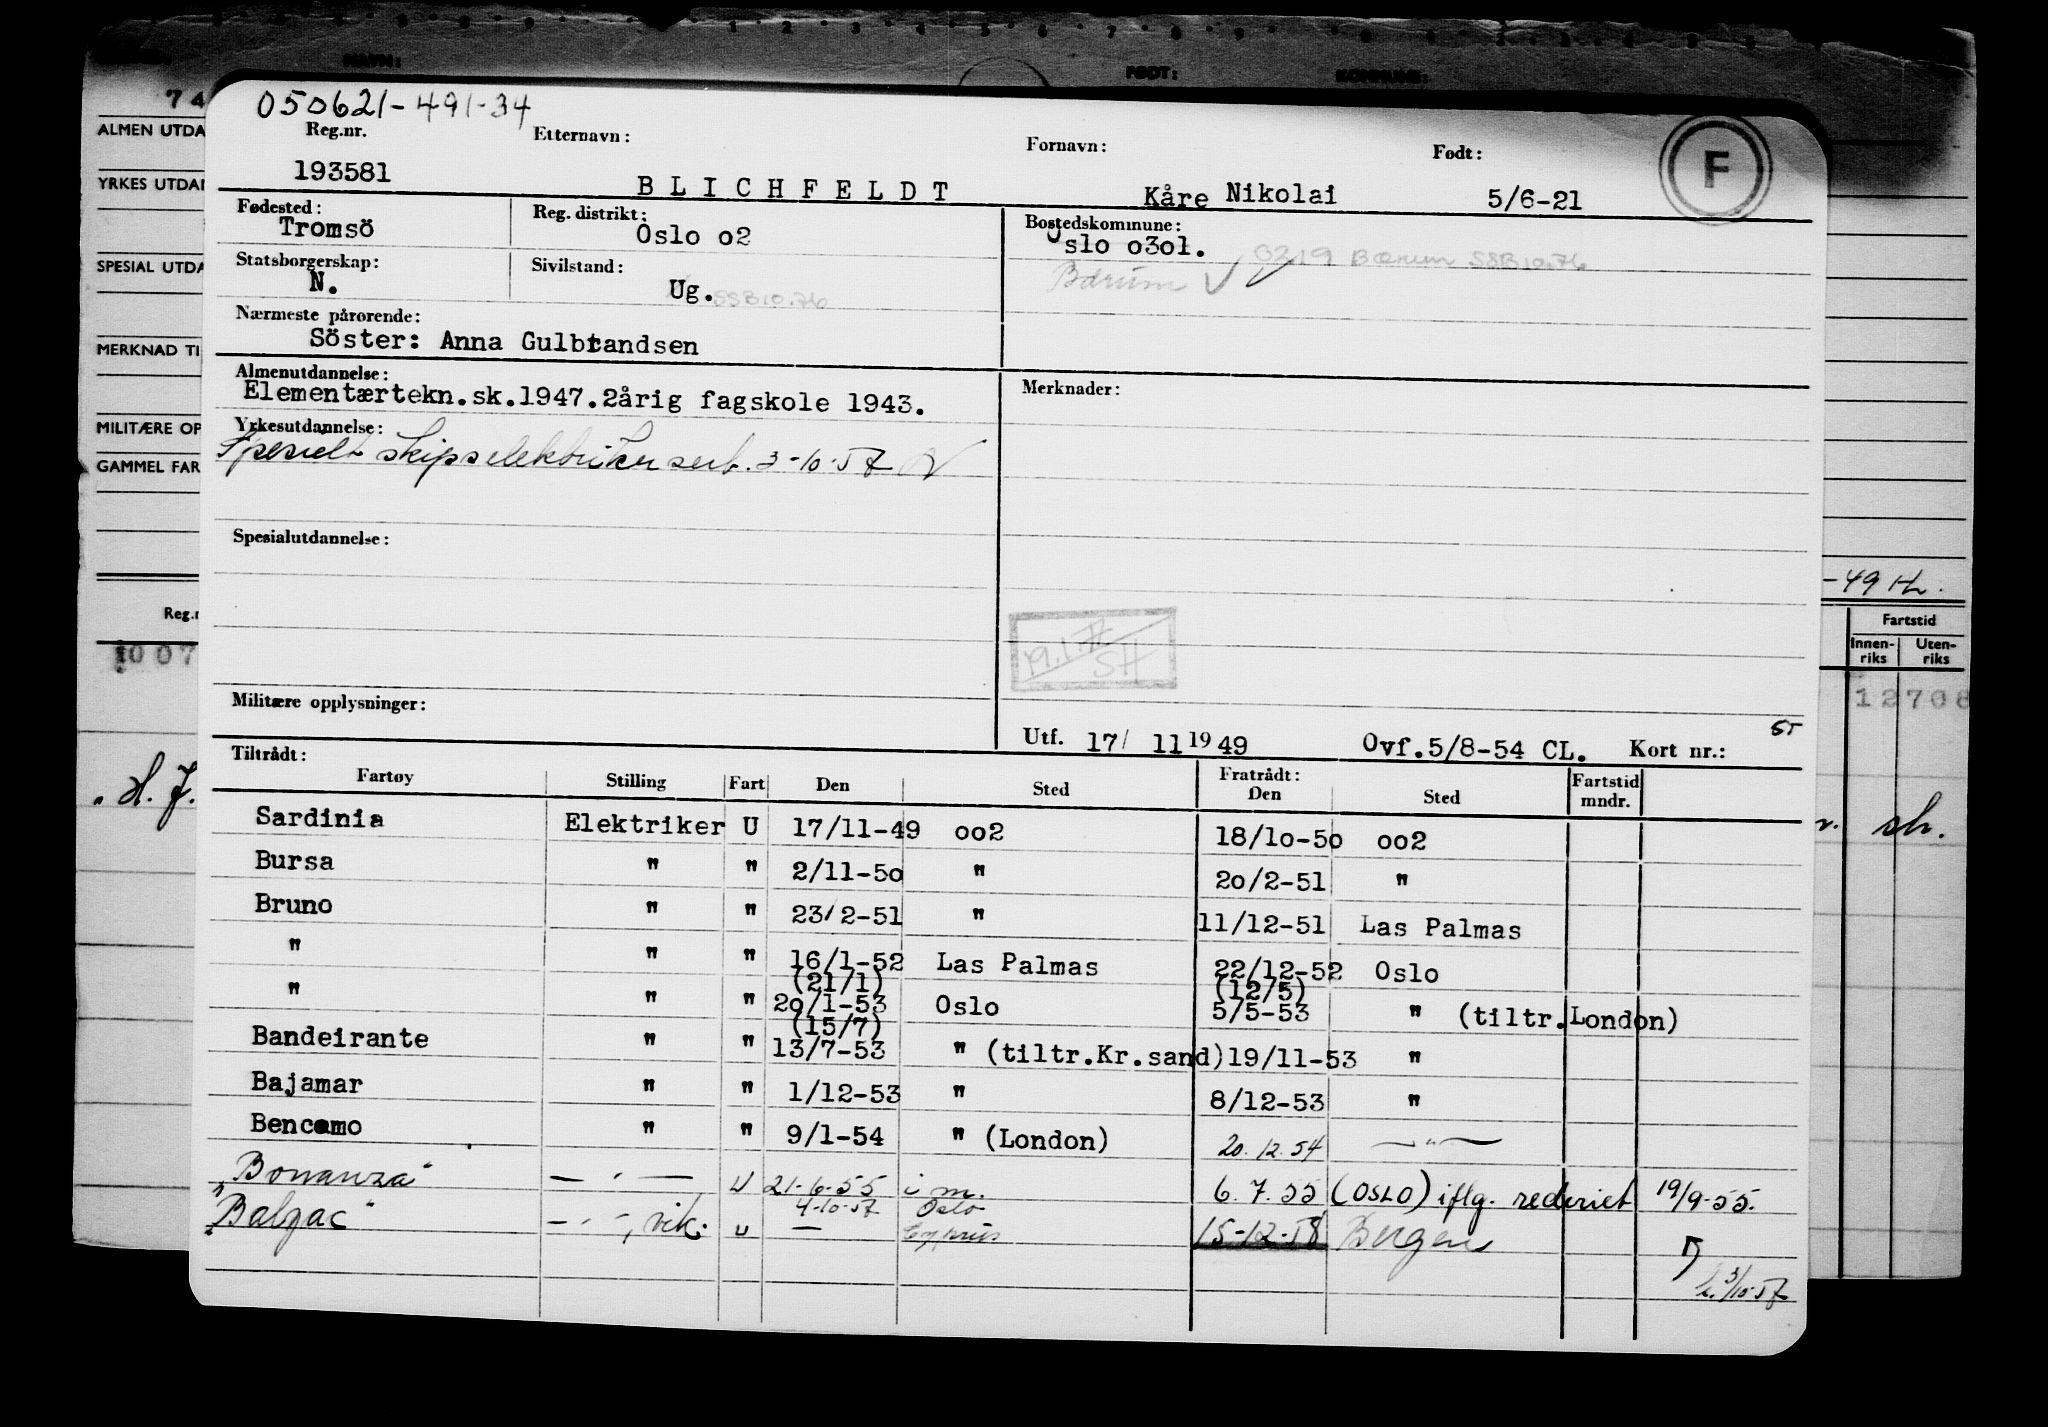 NAVN:
FØDT:
KOMMUNE:
7 4
ALMEN UTDA
YRKES UTDAN
SPESIAL UTDA
MERKNAD TI
MILITÆRE OP
GAMMEL FAR
Reg.n
007
-49 H.
Fartstid
Innen-riks Uten-riks
12708
slr.
050621-491-34
Reg.nr. Etternavn: Fornavn: Født:
F
193581 BLICHFELDT Kåre Nikolai 5/6-21
Fødested: Reg. distrikt: Bostedskommune:
Tromsö Oslo o2 Oslo o3ol.
0219 Bærum SSB 10.76
Statsborgerskap: Sivilstand: Bærum
N. Ug. SSB 10.76
Nærmeste pårørende:
Söster: Anna Gulbrandsen
Almenutdannelse: Merknader:
Elementærtekn.sk.1947.2årig fagskole 1943.
Yrkesutdannelse:
Spesielt skipselektriker sert. 3-10-57
Spesialutdannelse:
19.1.77
SH
Militære opplysninger:
Utf. 17/ 11 19 49 Ovf.5/8-54 CL. Kort nr.:
Tiltrådt: Fratrådt:
Fartøy Stilling Fart Den Sted Den Sted Fartstid mndr.
Sardinia Elektriker U 17/11-49 oo2 18/10-50 oo2
Bursa " " 2/11-50 " 20/2-51 "
Bruno " " 23/2-51 " 11/12-51 Las Palmas
" " " 16/1-52 Las Palmas 22/12-52 Oslo
(21/1) (12/5)
" " " 20/1-53 Oslo 5/5-53 " (tiltr.London)
(15/7)
Bandeirante " " 13/7-53 " (tiltr.Kr.sand) 19/11-53 "
Bajamar " " 1/12-53 " 8/12-53 "
Bencomo " " 9/1-54 " (London) 20.12.54 —"—
"Bonanza" — " — U 21-6-55 i m. 6.7.55 (OSLO) iflg. rederiet 19/9-55.
4-10-57 Oslo
"Balzac" — " —, vik. U — Cyprus 15-12-58 Bergen
3/10-57